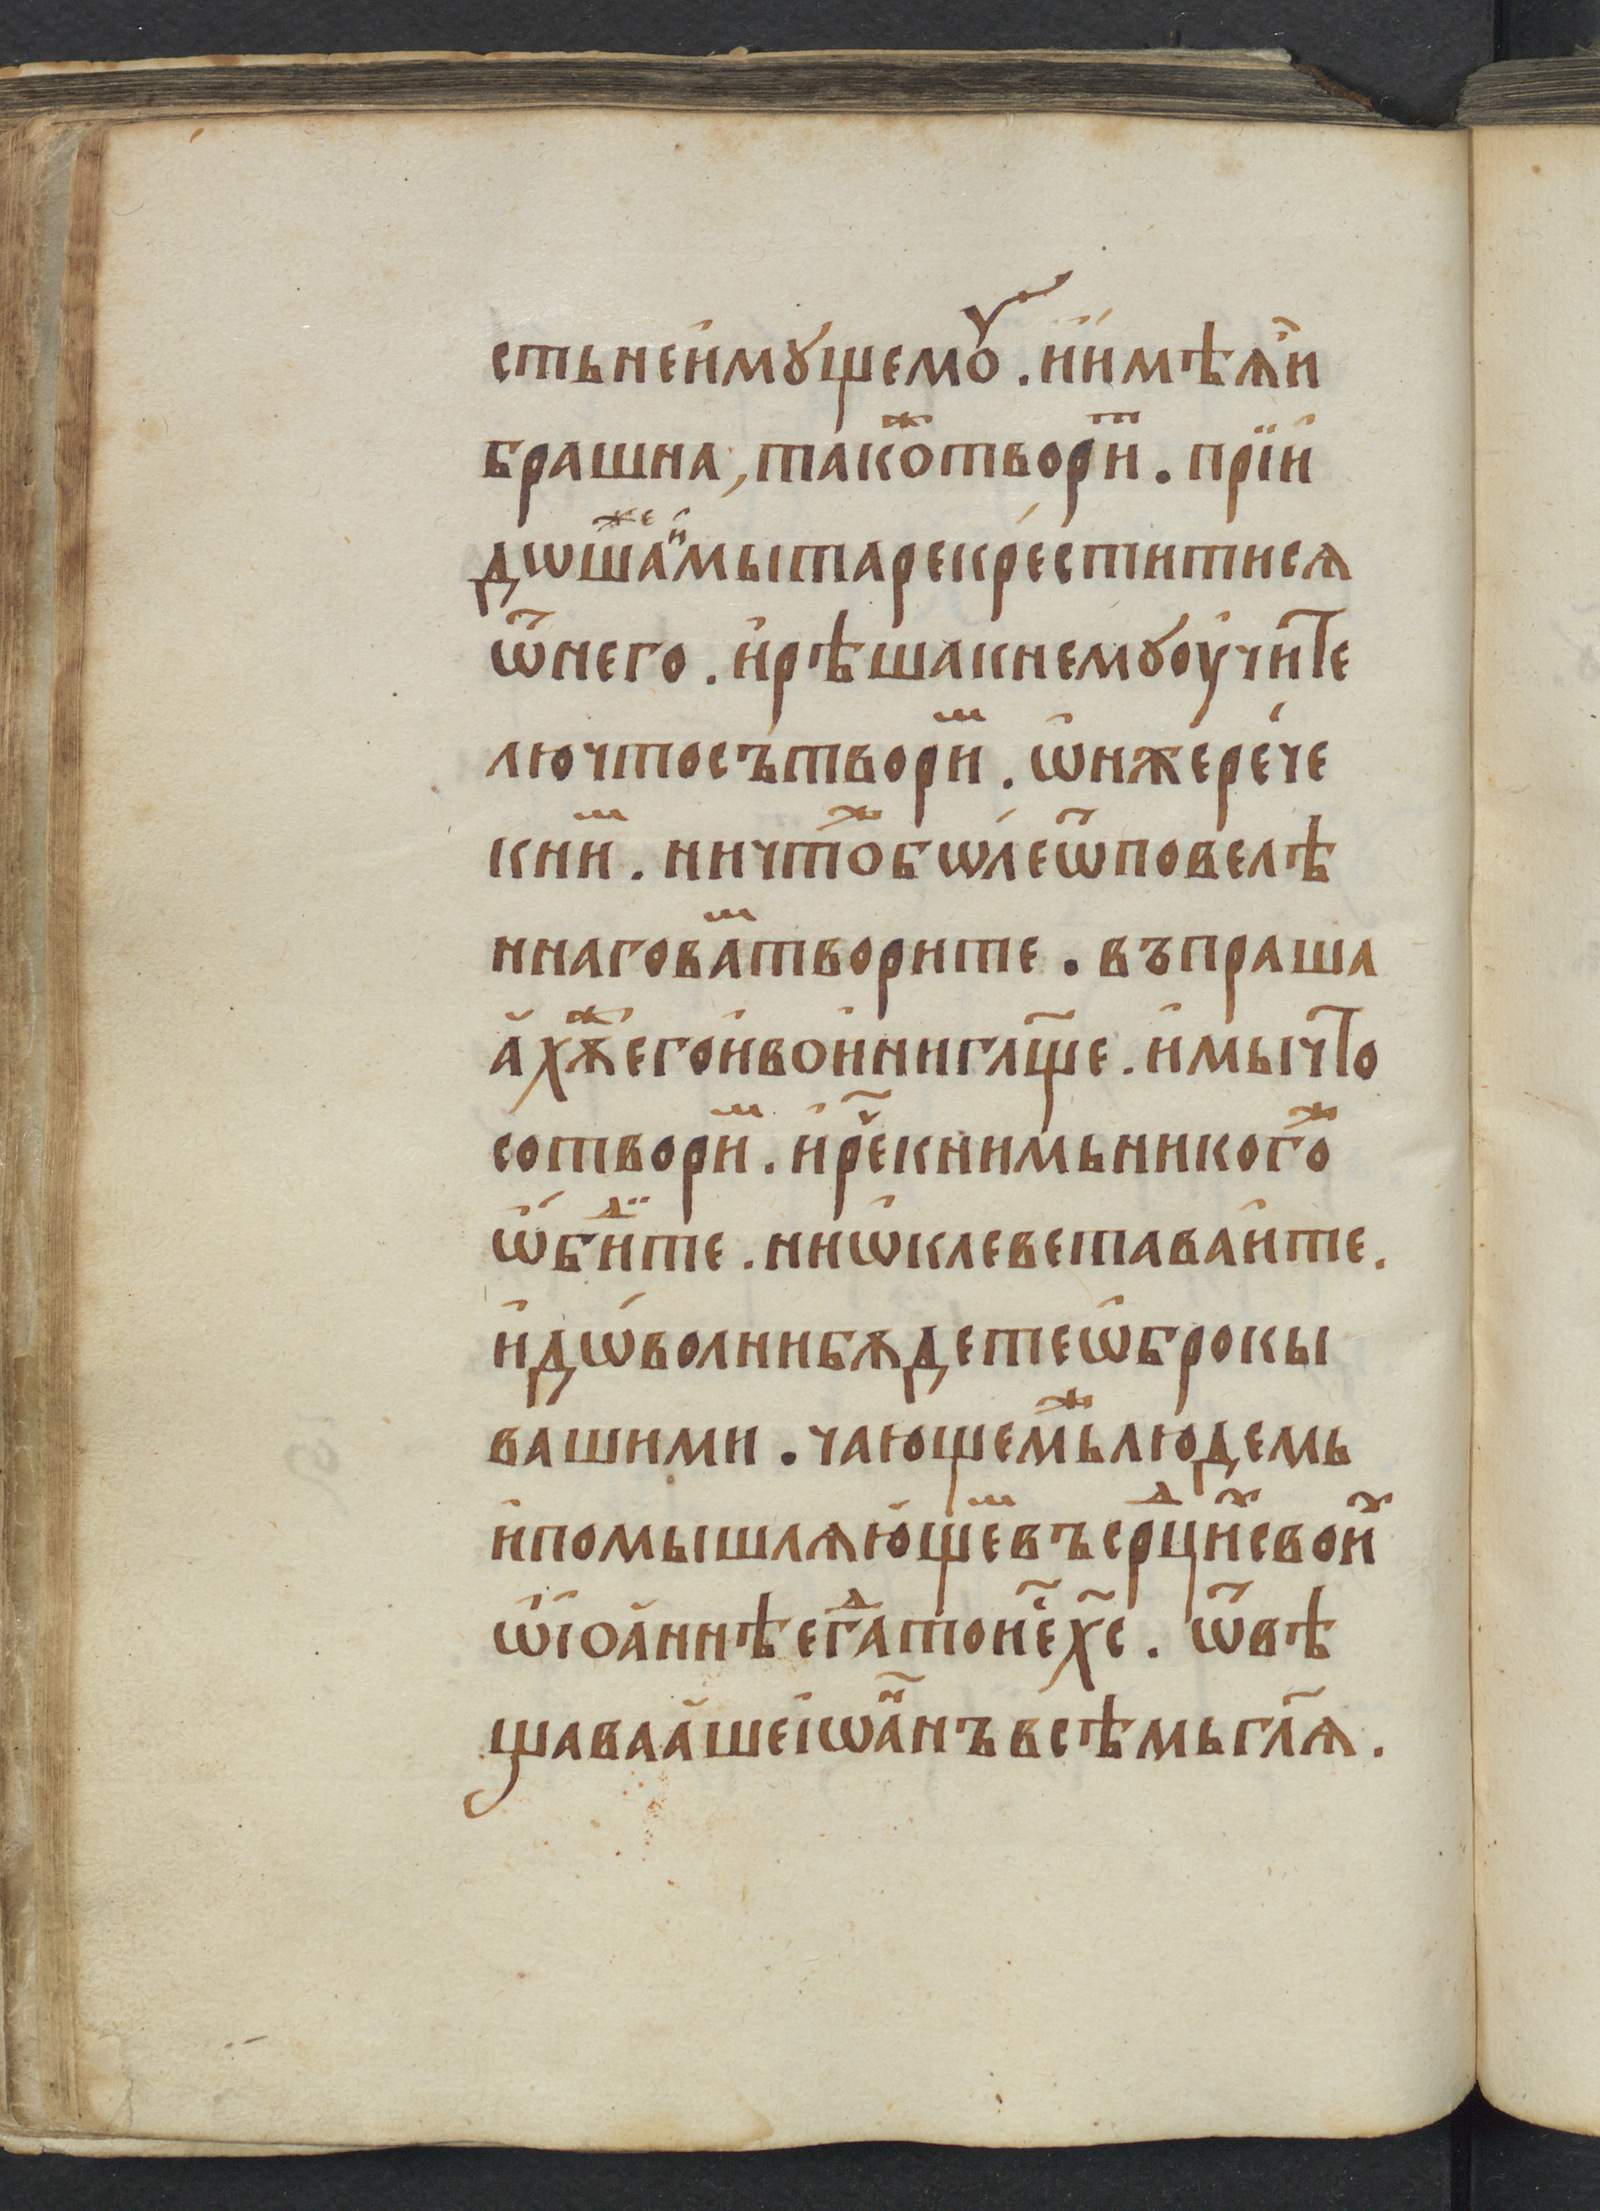 стьнеи҆мꙋщемꙋ . и҆и҆мѣѧ҆и
брашна , такоⷤтвориⷮ . прїи҆
дѡшаⷤ҇еⷩ҇мытарекре́ститисѧ
ѿнего . и҆рѣшакнемꙋоу҆чит҇е
лючтосътвориⷨ . ѡ҆нже́ре́че
книⷨ . ничтоⷤбѡ́леѿповелѣ
ннаговаⷨтворите . въпраша
а҆хѫⷤегои҆вои҆ниглщ҃е . и҆мычт҇о
сотвориⷨ . и҆ре҃книмьникогоⷤ
ѡ҆биⷣте . ниѡ҆клеветаваи҆те .
и҆дѡ́волнибѫдетеѡ҆брокы
вашими . чающемьⷤлюдемь
и҆помышлѧю҆щеⷨвъсрⷣциⷯсвоиⷯ
ѡ҆і҆оа҆ннѣегаⷣтоне҃хс҃ . ѿвѣ
щаваа҆шеіѡа҃нъвсѣмьгл҃ѧ .